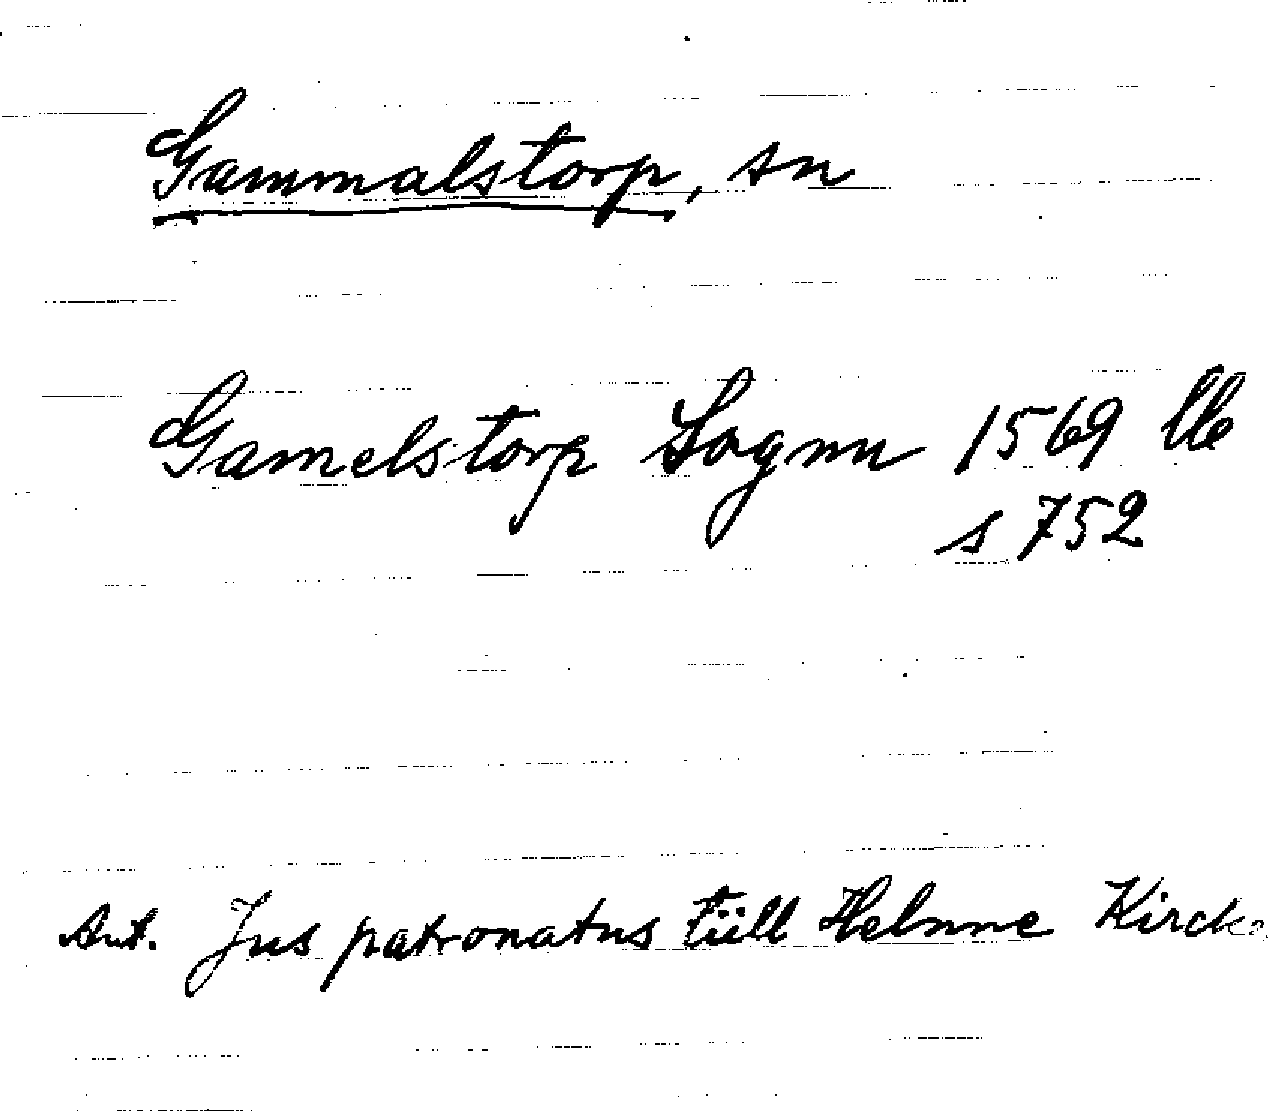 Gammalstorp, sn
Gamelstorp Sognn 1569 llb
s 752
Ant. Jus patronatus tüll Helnne Kircke